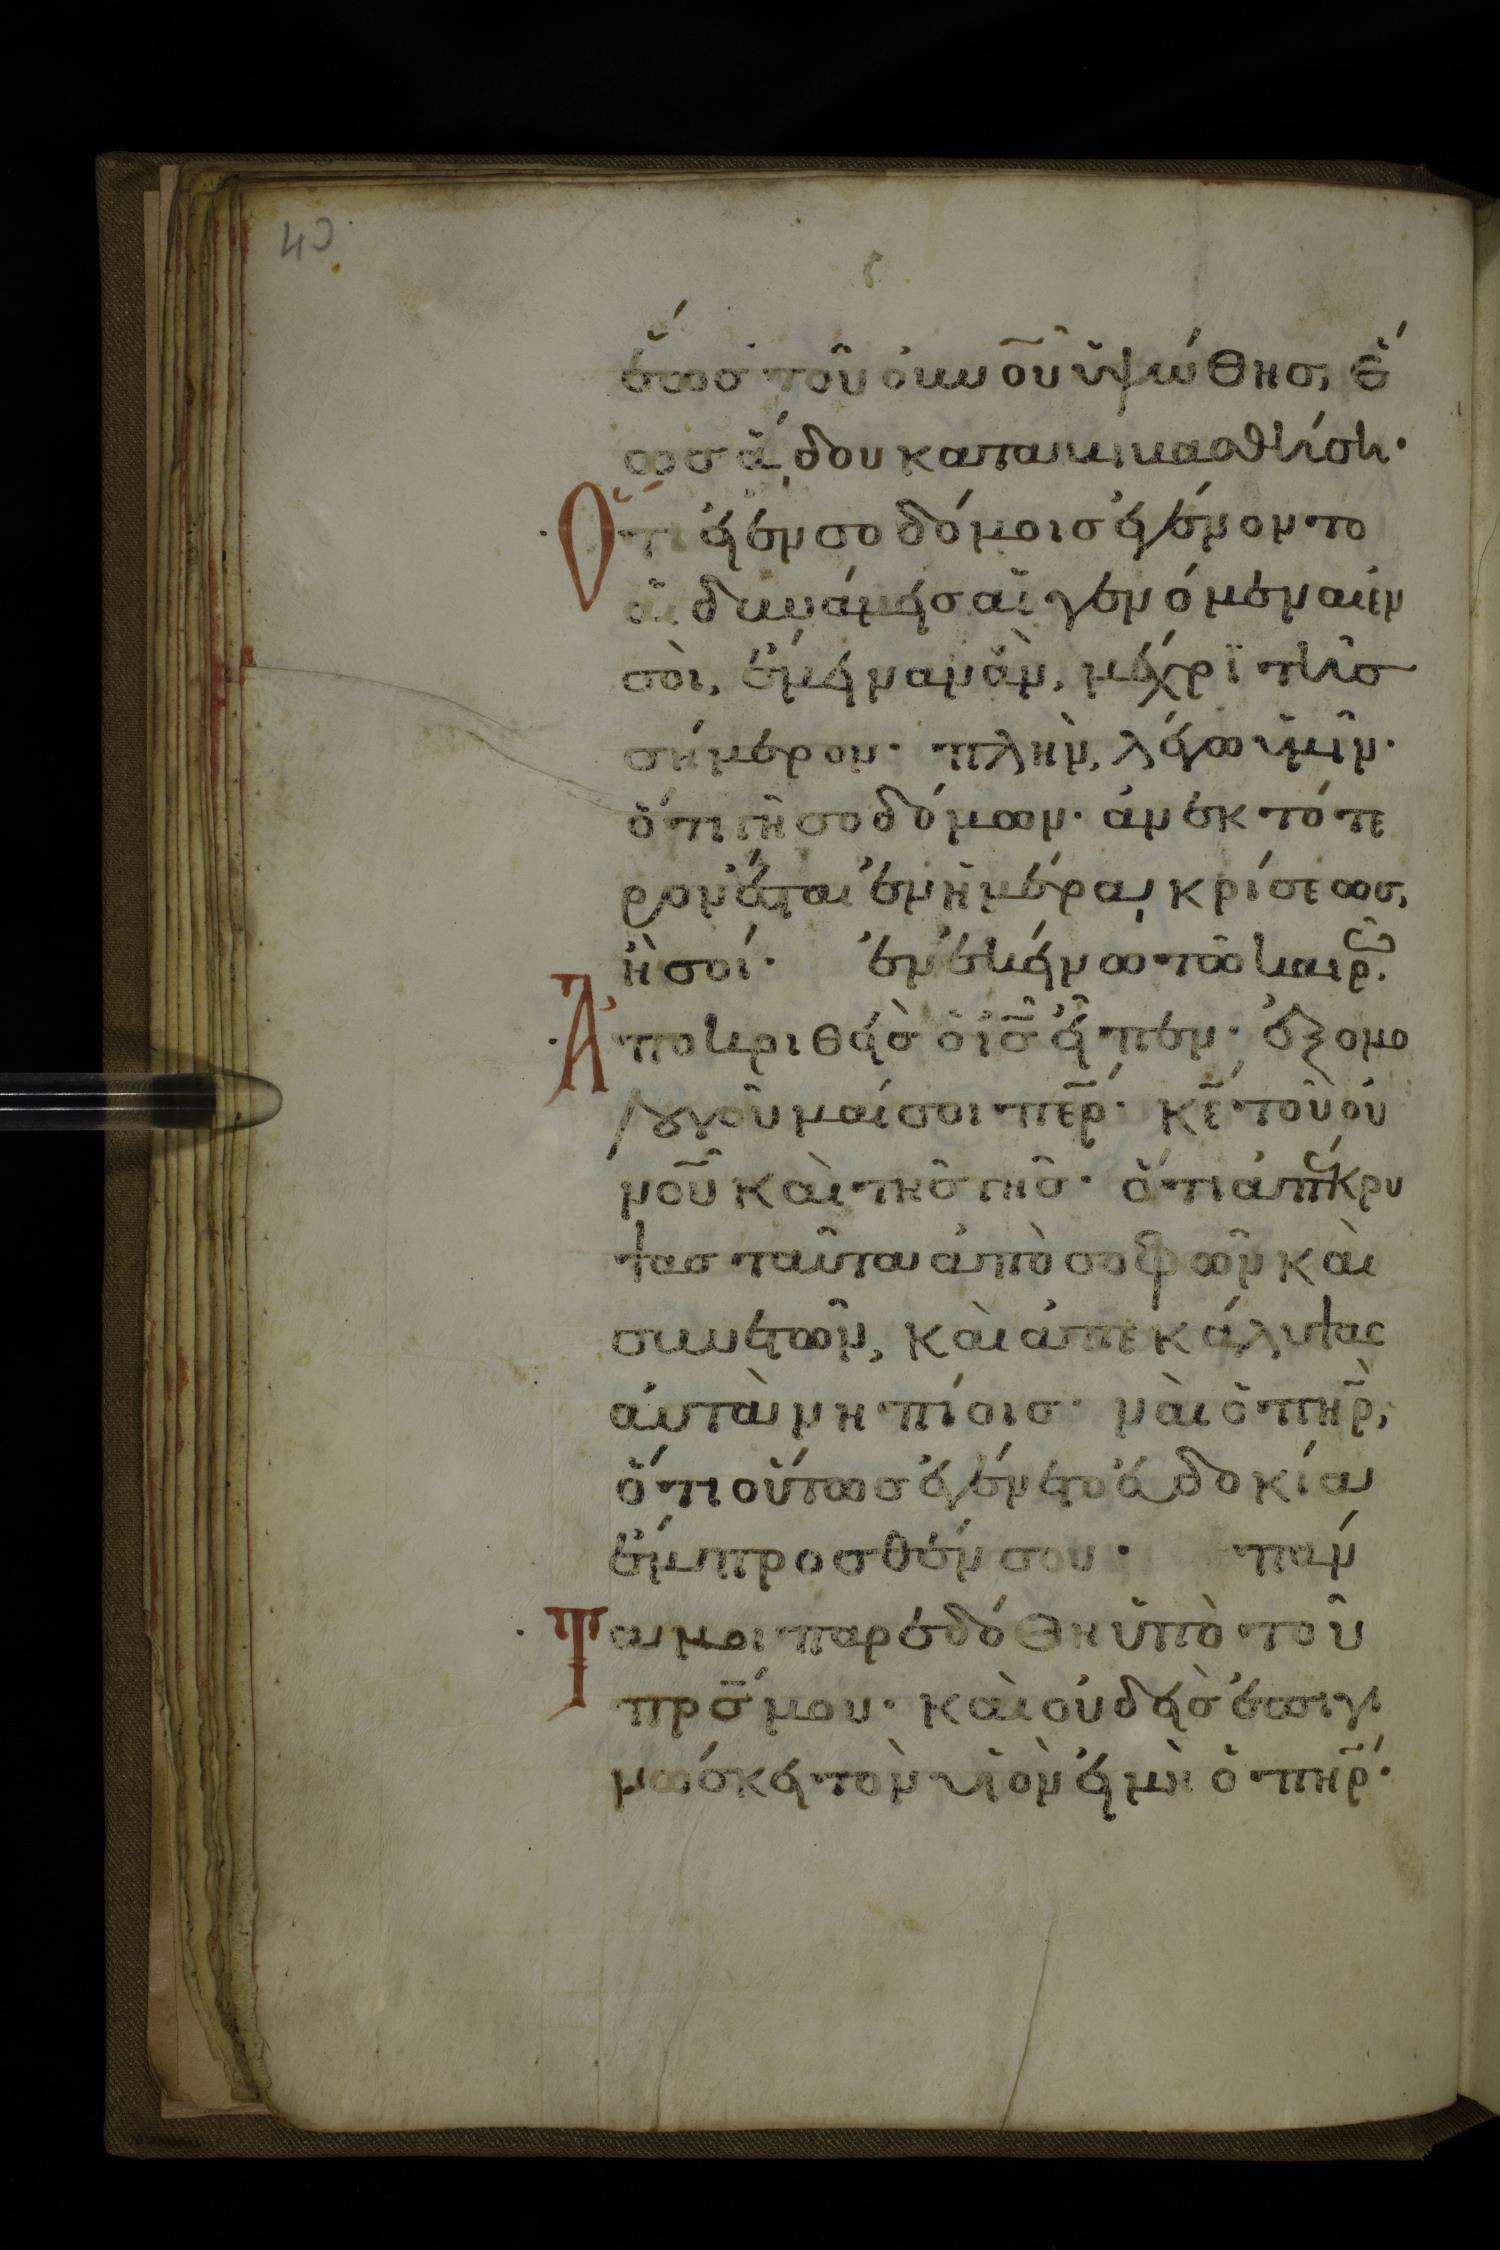 40
ἕως τοῦ οὐνοῦ ὑψώθης, ἕ
ως ἅδου καταβιβασθήσῃ·
Ὅτι εἰ ἐν σοδόμοις ἐγένοντο
αἱ δυνάμεις αἱ γενόμεναι ἐν
σοὶ, ἔμειναν ἂν, μέχρϊ τῆς
σήμερον· πλὴν, λέγω ὑμῖν·
ὅτι γῆ σοδόμων· ἀνεκτότε
ρον ἔσται ἐν ἡμέρα κρίσεως,
ἢ σοί· ἐν ἐκείνω τῶ καιρῶ.
Ἀποκριθεὶς ὁ ις εἶπεν· ἐξομο
λογοῦμαί σοι περ· κε τοῦ οὐ
νοῦ καὶ τῆς γῆς· ὅτι ἀπέκρυ
ψας ταῦτα ἀπὸ σοφῶν καὶ
συνετῶν, καὶ ἀπεκάλυψας
αὐτὰ νηπίοις· ναὶ ὁ πηρ,
ὅτι οὕτως ἐγένετο εὐδοκία
ἔμπροσθέν σου· πάν
Τα μοι παρεδόθη ὑπὸ τοῦ
πρς μου· καὶ οὐδεὶς ἐπιγι
νώσκει τὸν υἱὸν εἰ μὴ ὁ πηρ·